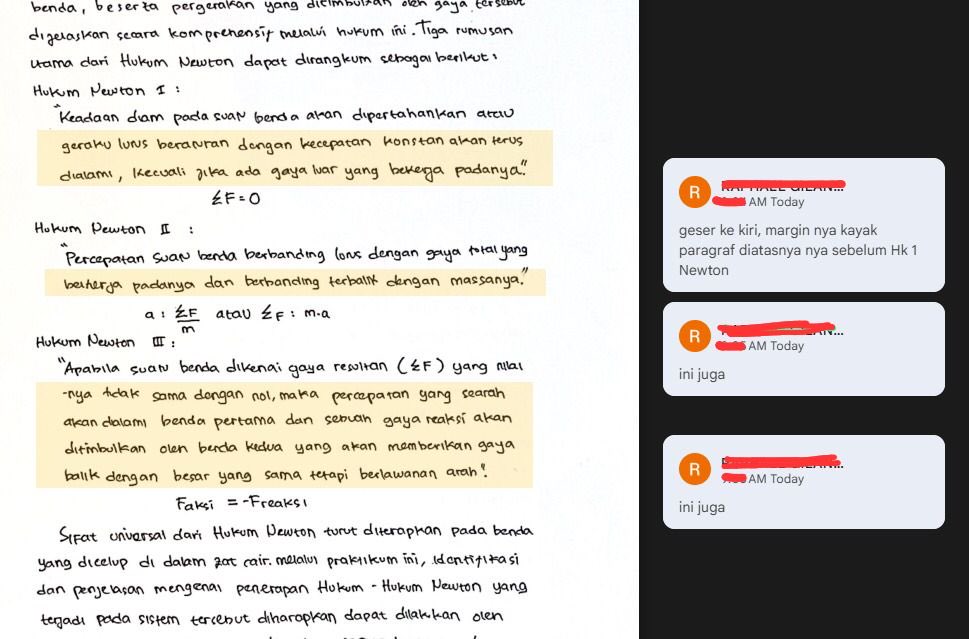 benda, beserta pergerakan yang ditimbulkan oleh gaya tersebut
dijelaskan secara komprehensif melalui hukum ini. Tiga rumusan
utama dari Hukum Newton dapat dirangkum sebagai berikut:
Hukum Newton I :
"Keadaan diam pada suatu benda akan dipertahankan atau
geraku lurus beraturan dengan kecepatan konstan akan terus
dialami, kecuali jika ada gaya luar yang bekerja padanya."
ΣF = 0
Hukum Newton II :
"Percepatan suatu benda berbanding lurus dengan gaya total yang
bekerja padanya dan berbanding terbalik dengan massanya."
a : ΣF/m atau ΣF : m.a
Hukum Newton III :
"Apabila suatu benda dikenai gaya resultan (ΣF) yang nilai
-nya tidak sama dengan nol, maka percepatan yang searah
akan dialami benda pertama dan sebuah gaya reaksi akan
ditimbulkan oleh benda kedua yang akan memberikan gaya
balik dengan besar yang sama tetapi berlawanan arah".
Faksi = -Freaksi
Sifat universal dari Hukum Newton turut diterapkan pada benda
yang dicelup di dalam zat cair. melalui praktikum ini, identifikasi
dan penjelasan mengenai penerapan Hukum - Hukum Newton yang
terjadi pada sistem tersebut diharapkan dapat dilakukan oleh
R
AM Today
geser ke kiri, margin nya kayak
paragraf diatasnya nya sebelum Hk 1
Newton
R
AM Today
ini juga
R
AM Today
ini juga